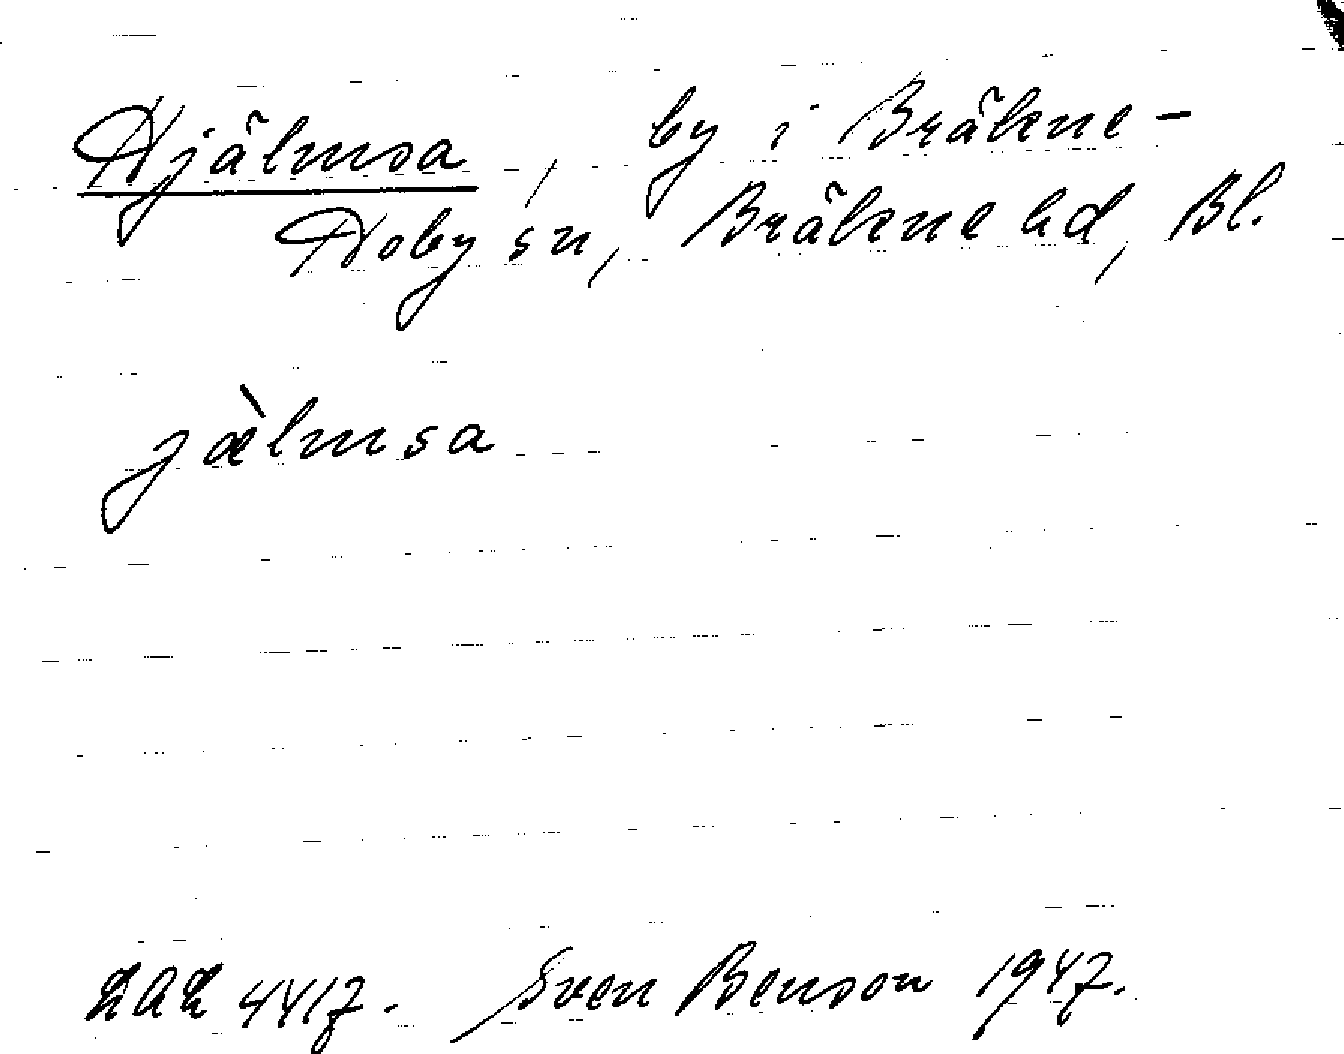 Hjälmsa, by i Bräkne-
Hoby sn, Bräkne hd, Bl.
jæ̀lmsa
LAL 4417. Sven Benson 1947.